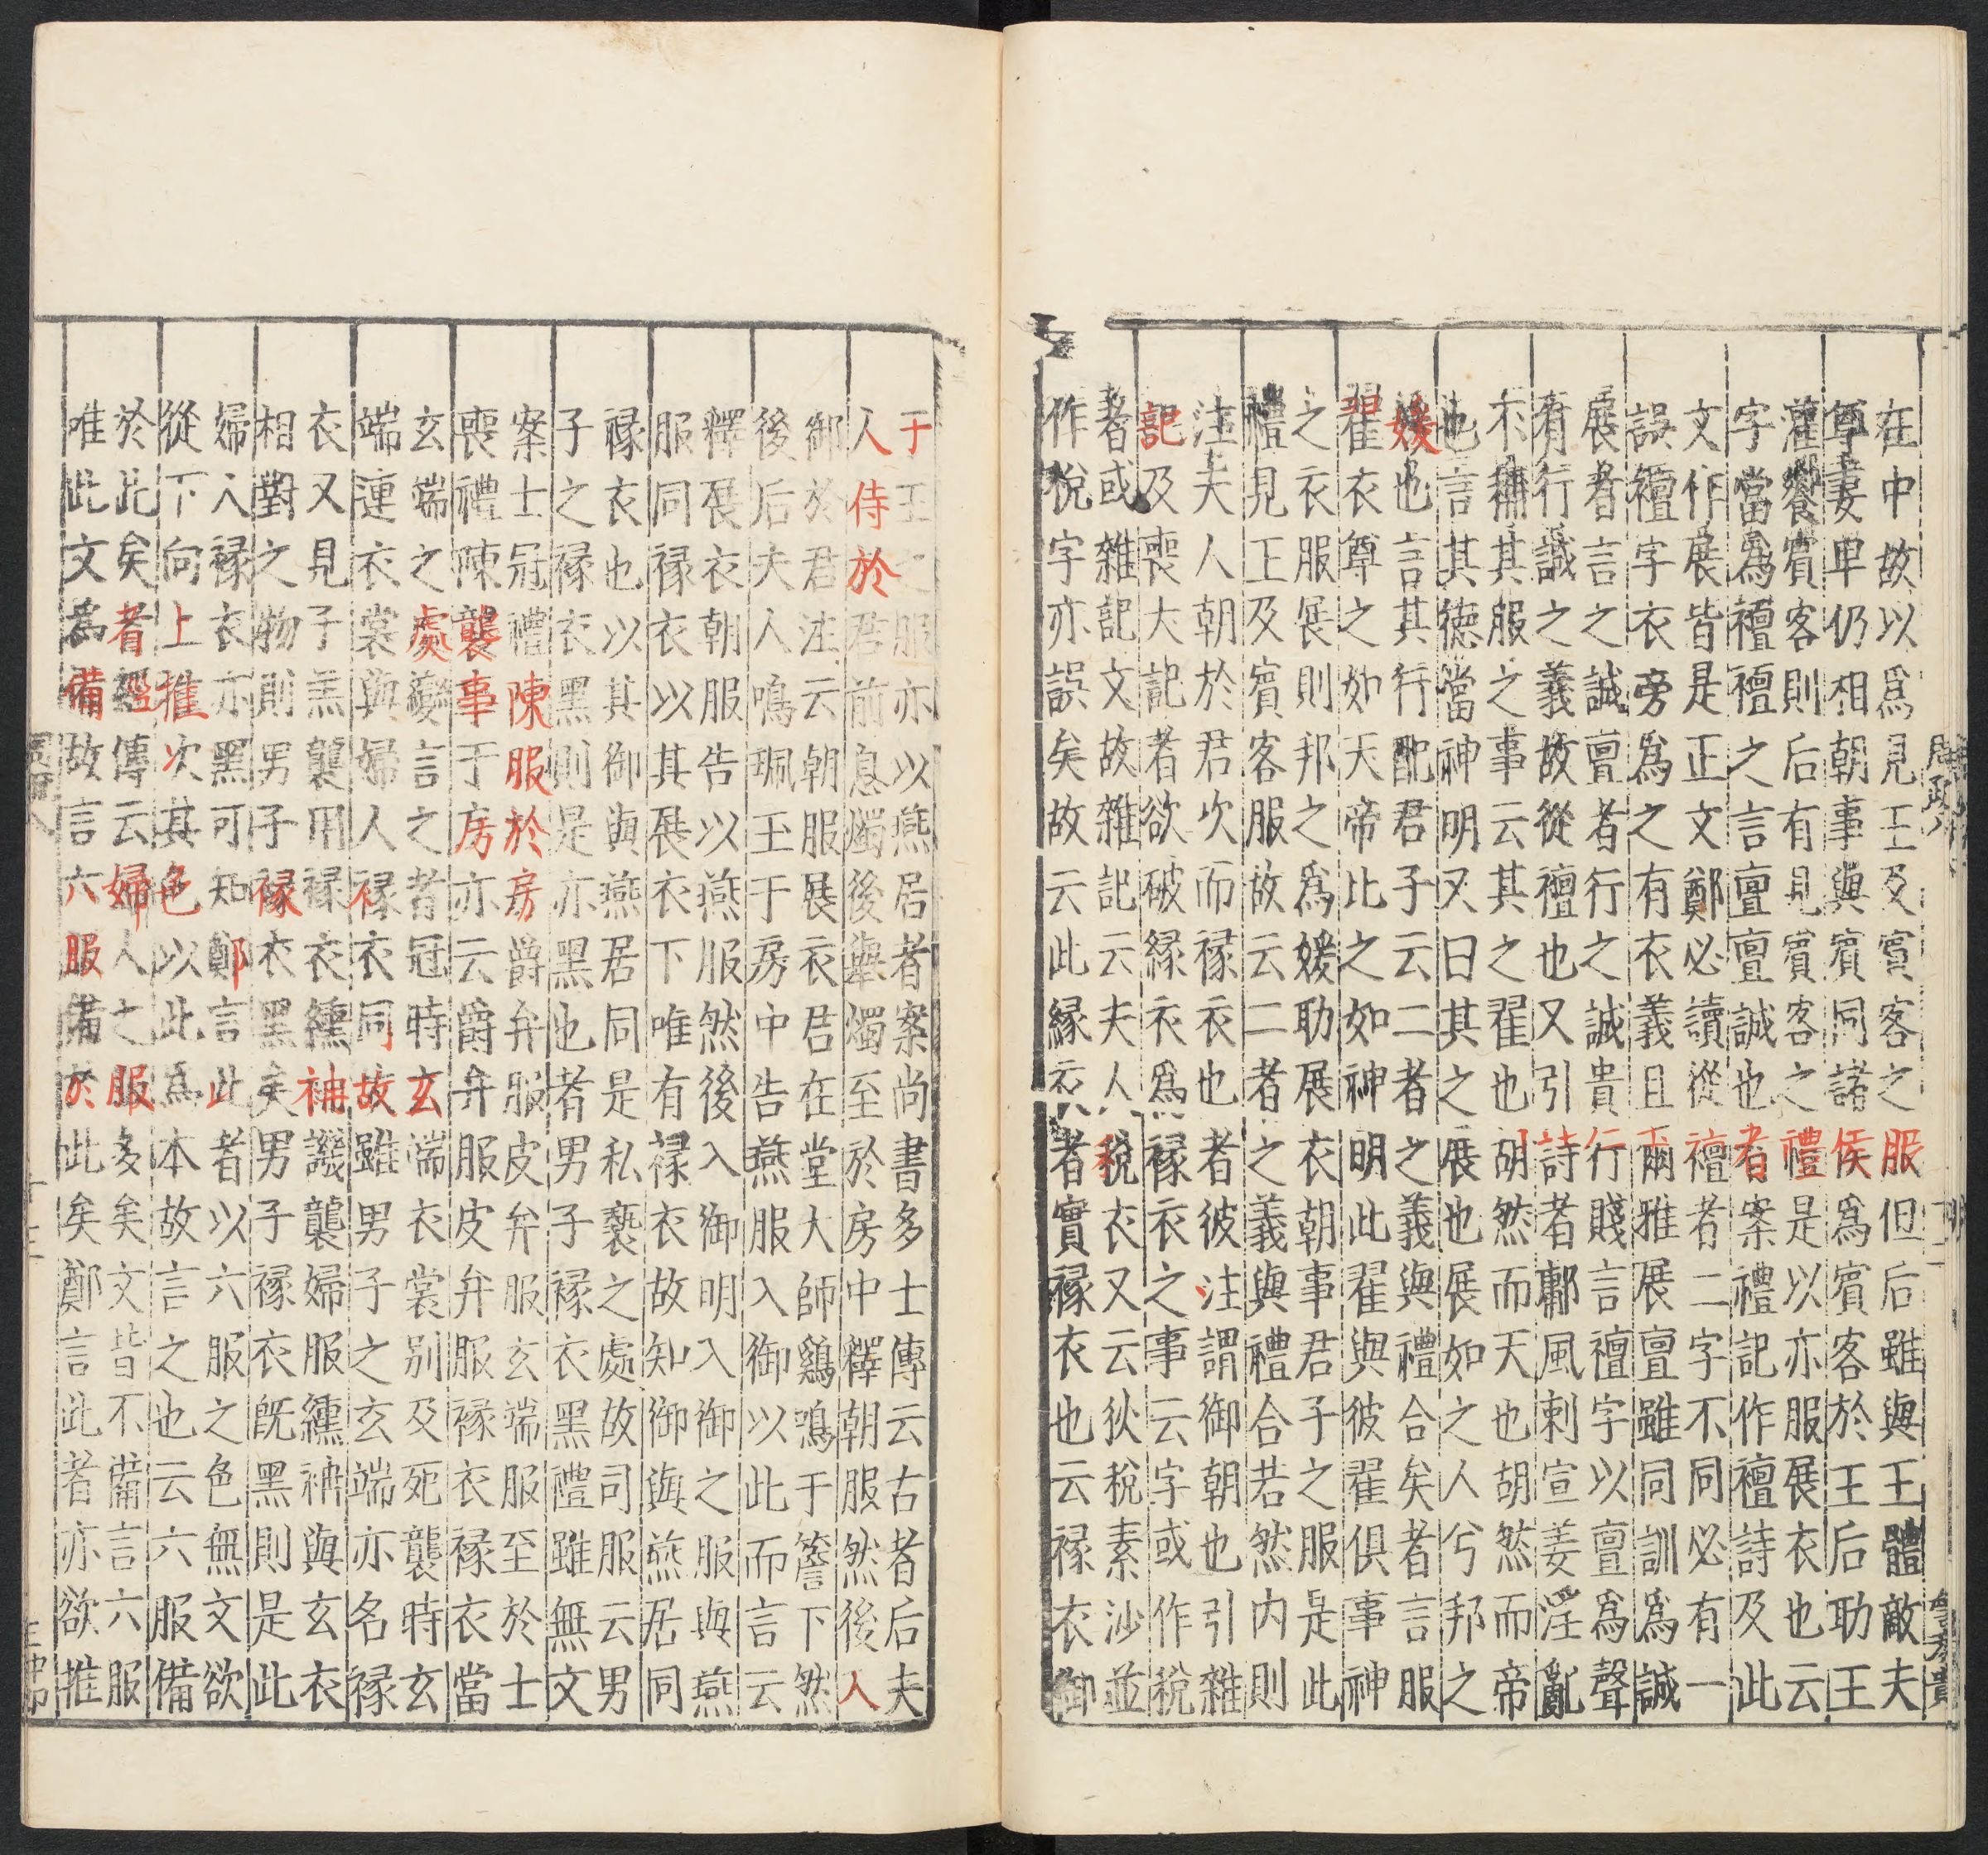 在中故以爲見王及賓客之服但后雖與王體敵夫
尊妻卑仍相朝事與賓同諸侯爲賓客於王后助王
灌饗賓客則后有見賓客之禮是以亦服展衣也云
字當爲襢襢之言亶亶誠也者案禮記作襢詩及此
文作展皆是正文鄭必讀從襢者二字不同必有一
誤襢字衣旁爲之有衣義且爾雅展亶雖同訓爲誠
展者言之誠亶者行之誠貴行賤言襢字以亶爲聲
有行誠之義故從襢也又引詩者鄘風刺宣姜淫亂
不稱其服之事云其之翟也胡然而天也胡然而帝
也言其德當神明又曰其之展也展如之人兮邦之
媛也言其行配君子云二者之義與禮合矣者言服
翟衣尊之如天帝比之如神明此翟與彼翟俱事神
之衣服展則邦之爲媛助展衣朝事君子之服是此
禮見王及賓客服故云二者之義與禮合若然內則
注夫人朝於君次而褖衣也者彼注謂御朝也引雜
記及喪大記者欲破緣衣爲褖衣之事云字或作稅
者或雜記文故雜記云夫人稅衣又云狄稅素沙並
作稅字亦誤矣故云此緣衣者實褖衣也云褖衣御
于王之服亦以燕居者案尚書多士傳云古者后夫
人侍於君前息燭後舉燭至於房中釋朝服然後入
御於君注云朝服展衣君在堂大師鷄鳴于簷下然
後后夫人鳴珮玉于房中告燕服入御以此而言云
釋展衣朝服告以燕服然後入御明入御之服與燕
服同褖衣以其展衣下唯有褖衣故知御與燕居同
褖衣也以其御與燕居同是私褻之處故司服云男
子之褖衣黑則是亦黑也者男子褖衣黑禮雖無文
案士冠禮陳服於房爵弁服皮弁服玄端服至於士
喪禮陳襲事于房亦云爵弁服皮弁服褖衣褖衣當
玄端之處變言之者冠時玄端衣裳別及死襲時玄
端連衣裳與婦人褖衣同故雖男子之玄端亦名褖
衣又見子羔襲用褖衣纁袡譏襲婦服纁袡與玄衣
相對之物則男子褖衣黑矣男子褖衣既黑則是此
婦人褖衣亦黑可知鄭言此者以六服之色無文欲
從下向上推次其色以此爲本故言之也云六服備
於此矣者經傳云婦人之服多矣文皆不備言六服
唯此文爲備故言六服備於此矣鄭言此者亦欲推